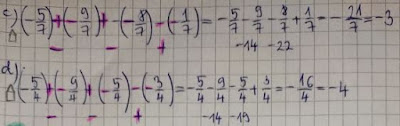 c) (-5/7)+(-9/7)+(-8/7)-(-1/7)=-5/7-9/7-8/7+1/7=-21/7=-3
- - - +
-14 -22
d) (-5/4)+(-9/4)+(-5/4)-(-3/4)=-5/4-9/4-5/4+3/4=-16/4=-4
- - +
-14 -19